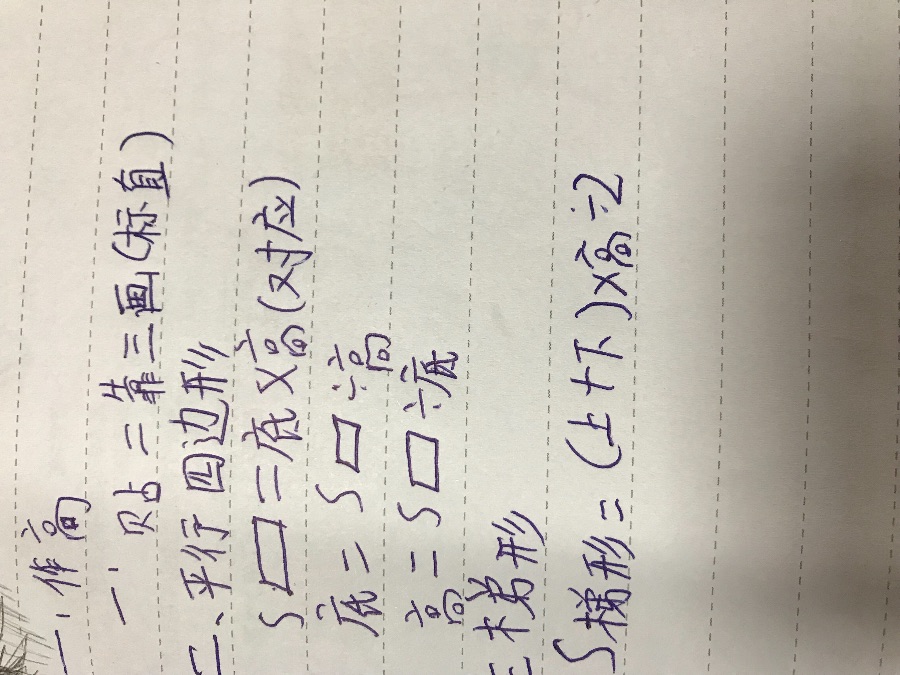 一、作高
一、贴二靠三画(标直)
二、平行四边形
S▱=底×高(对应)
底=S▱÷高
高=S▱÷底
三梯形
S梯形=(上+下)×高÷2